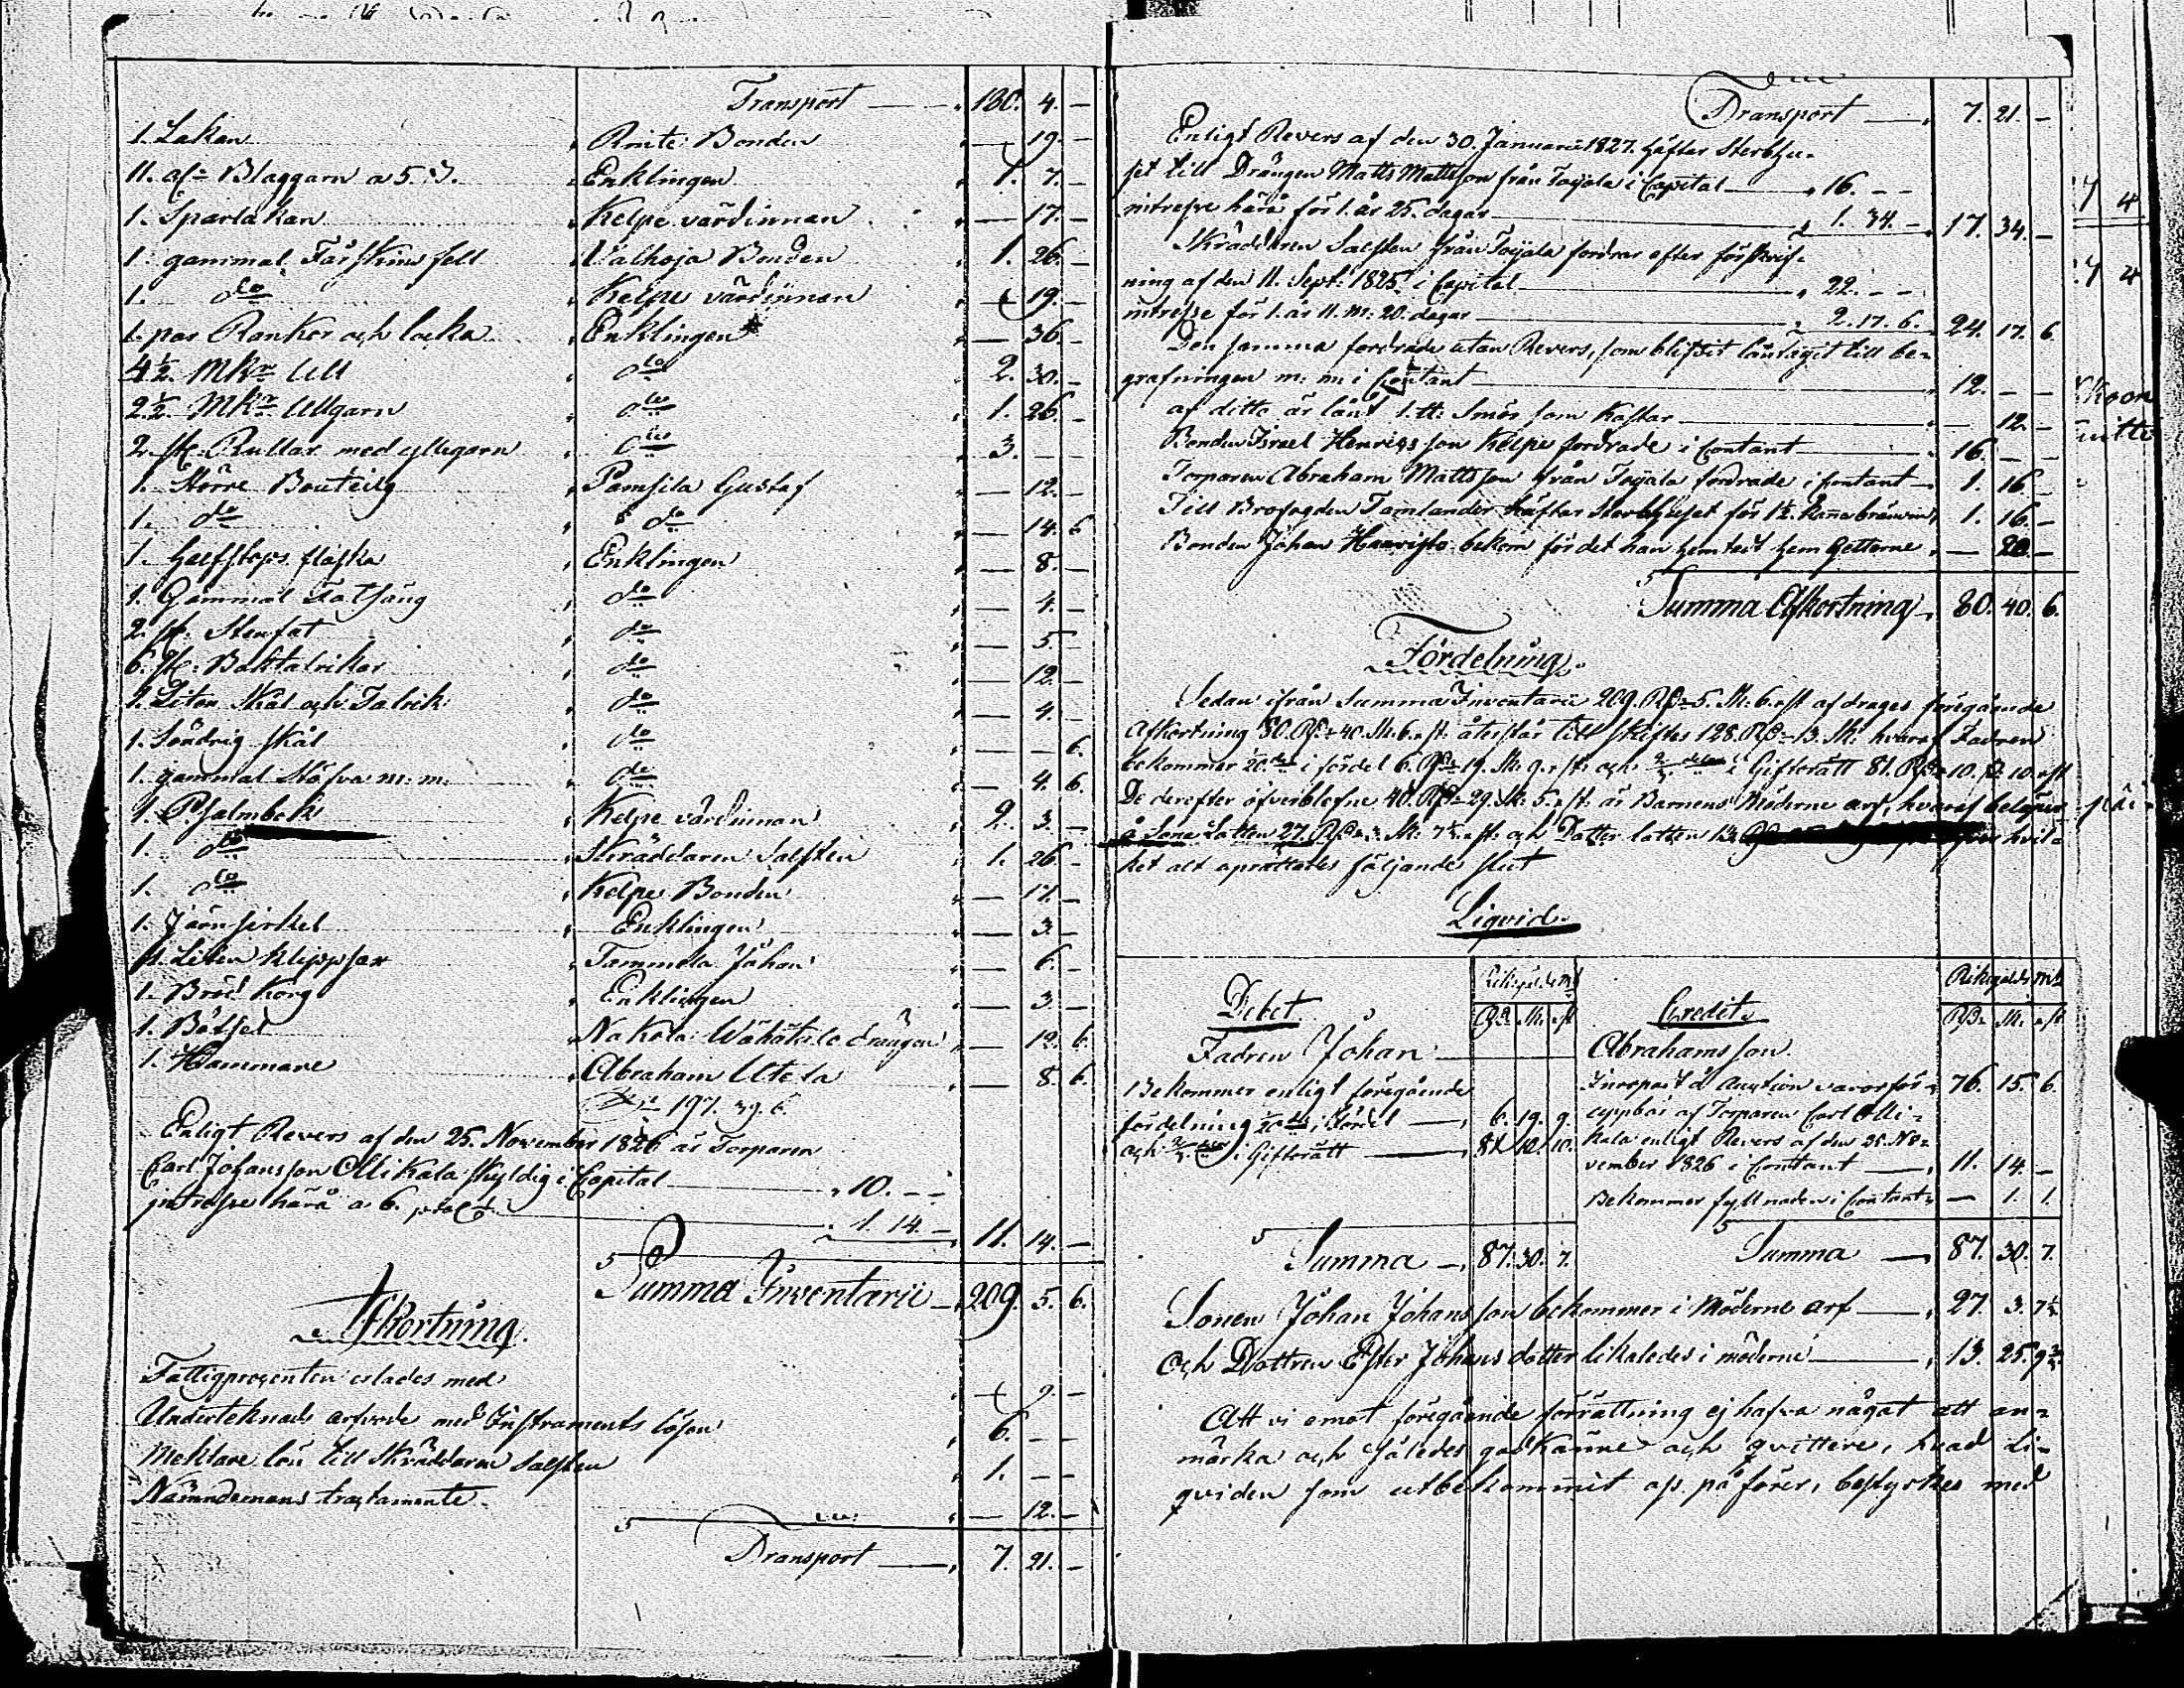 Transport — 180. 4. —
1. Lakan Rinte Bonden — 19. —
11. al:r Blaggarn a 5. Enklingen 1. 7. —
1. Sparlakan Kelpe värdinnan — 17. —
1. gammal Fårskins fell Bonden 1. 26. —
1. do Kelpe värdinnan — 19. —
1. par Rankor och locka Enklingen — 36. —
4½. Mkr Ull do 2. 30. —
2½. Mkr Ullgarn do 1. 26. —
2. st: Rullar med yllegarn do 3. — —
1. Större Bouteilg Pamsila Gustaf — 12. —
1. do do — 14. 6
1. Halfstops flaska Enklingen — 8. —
1. Gammal do — 4. —
2. st: Stenfat do — 5. —
6. st: Baktalrikar do — 12. —
1. Liten Skål och Talrik do — 4. —
1. Söndrig skål do — — 6.
1. gammal Stäfva m: m: do — 4. 6.
1. Psalmbok Kelpe värdinnan 2. 3. —
1. do Skräddaren Salsten 1. 26 —
1. do Kelpe Bonden — 17. —
1. Järnsirkel Enklingen — 3 —
1. Liten klippsax Tammela Johan — 6. —
1. Bröd Korg Enklingen — 3 —
1. Bätsel Nakola drängen — 12. 6.
1. Hammare Abraham Utela — 8. 6.
197. 39. 6.
Enligt Revers af den 25. November 1826 är Torparen
Carl Johansson Ollikala Skyldig i Capital — 10. — —
intresse härå a 6. — 1. 14. — 11. 14. —
Summa Inventarii — 209. 5. 6.
Afkortning.
Fattigprocenten erlades med — 9. —
Undertecknads arfvode med Instruments lösen 6. — —
Meklare lön till Skräddaren Salsten 1. — —
Nämndemans tractamente — 12. —
Transport — 7. 21. —
Transport — 7. 21. —
Enligt Revers af den 30. Januarii 1827. häftar Sterbhu-
set till Drängen Matts Mattsson från Toijala i Capital — 16. — —
intresse härå för 1. år 25. dagar — 1. 34. — 17. 34. —
Skräddaren Salsten från Toijala fordrar efter förskrif-
ning af den 11. Sept: 1825. i Capital — 22. — —
intresse för 1. år 11. m: 20. dagar — 2. 17. 6. 24. 17. 6.
Den samma fordrade utan Revers, som blifvit låntagit till be-
grafningen m: m: i Contant — 12. — —
af ditto är lånt 1. tt: Smör som kostar — — 12. —
Bonden Israel Henricsson Kelpe fordrade i Contant — 16. — —
Torparen Abraham Mattsson från Toijala fordrade i contant — 1. 16. —
Till Brofogden Tamlander häftar Sterbhuset för 1½. kanna bränvin, 1. 16. —
Bonden Johan Haavisto bekom för det han hemtat hem Getterne — 20. —
Summa Afkortning — 80. 40. 6.
Fördelning.
Sedan ifrån Summa Inventarii 209. Rd:r 5. Sk: 6. rst af drages föregående
Afkortning 80. Rd:r 40. Sk: 6. rst: återstår till skiftes 128. Rd:r 13. Sk: hvaraf Fadren
bekommer 20:de i fördel 6. Rd:r 19. Sk: 9. rst: och ⅔ delar i Giftorätt 81. Rd:r 10. sk 10. rst
De derefter öfverblefne 40. Rd:r 29. Sk: 5. rst: är Barnens Möderne arf, hvaraf belöper
å Sone Lotten 27. Rd:r 3. Sk: 7½. rst: och Dotter lotten 13. hvil-
ket alt uprättades följande slut
Liqvid.
Debet Riksgälds mt
Rd:r Sk: rst
Fadren Johan
Bekommer enligt föregående
fördelning 20:de i Fördel — 6. 19. 9.
och ⅔ delar i Giftorätt — 81. 10. 10.
Summa — 87. 30. 7.
Credit Riksgälds mt
Rd:r Sk: rst
Abrahamsson.
Inropat å Auction varor för — 76. 15. 6.
uppbär af Torparen Carl Olli-
kala enligt Revers af den 25. No-
vember 1826 i Contant — 11. 14. —
Bekommer fyllnaden i Contant — 1. 1.
Summa — 87. 30. 7.
Sonen Johan Johansson bekommer i Möderne arf — 27. 3. 7½
Och Dottren Ester Johansdotter likaledes i möderne — 13. 25. 9¾
Att vi emot föregående förrättning ej hafva något att an-
märka och således godkänne och qvittere, hvad Li-
qviden som utbekommit oss påförer, bestyrkes med